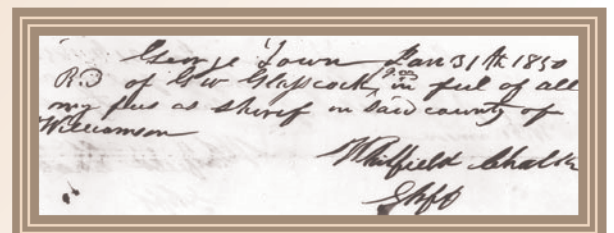 George Town Jan 31 th 1850
Rd of G W Glasscock in ful of all
my fees as Sherif in said county of
Williamson
Whitfield Chalk
Shff